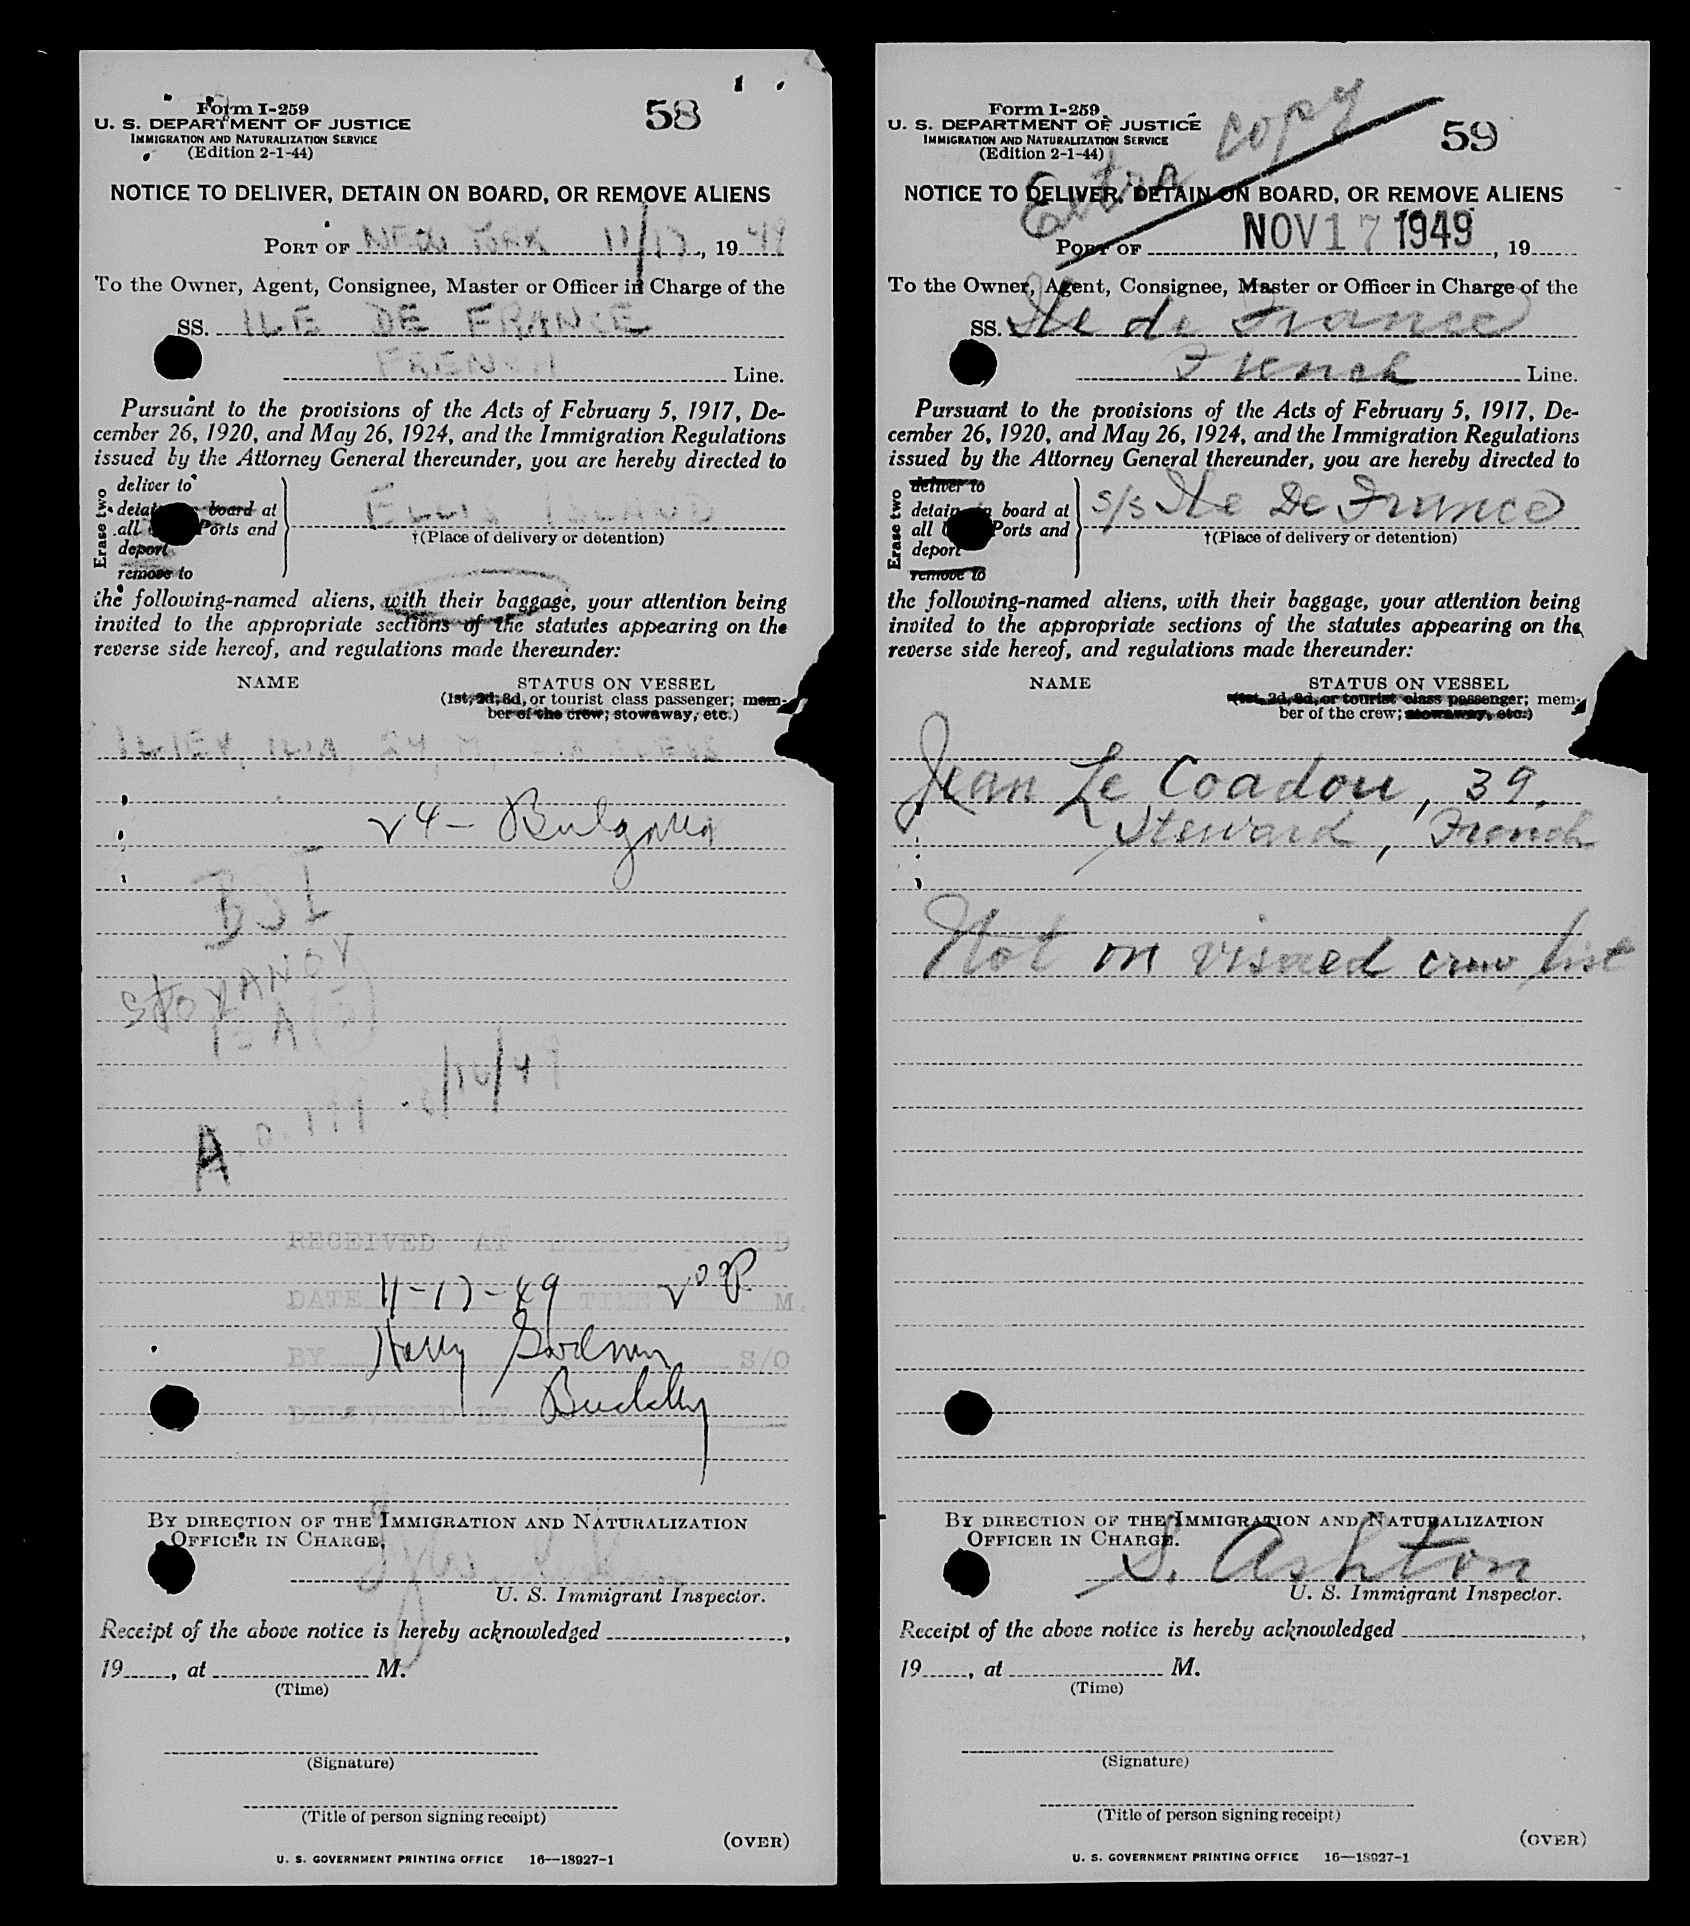 Form I-259
U. S. DEPARTMENT OF JUSTICE
IMMIGRATION AND NATURALIZATION SERVICE
(Edition 2-1-44)
58
NOTICE TO DELIVER, DETAIN ON BOARD, OR REMOVE ALIENS
PORT OF NEW YORK 11/17, 1949
To the Owner, Agent, Consignee, Master or Officer in Charge of the
SS. ILE DE FRANCE
FRENCH Line.
Pursuant to the provisions of the Acts of February 5, 1917, De-
cember 26, 1920, and May 26, 1924, and the Immigration Regulations
issued by the Attorney General thereunder, you are hereby directed to
Erase two
deliver to
board at
all Ports and
deport
remove to
ELLIS ISLAND
†(Place of delivery or detention)
the following-named aliens, with their baggage, your attention being
invited to the appropriate sections of the statutes appearing on the
reverse side hereof, and regulations made thereunder:
NAME STATUS ON VESSEL
(1st, 2d, 3d, or tourist class passenger; mem-
ber of the crew; stowaway, etc.)
ILIEV, ILIA, 24, M,
24 - Bulgaria
BSI
STOYANOV
A
RECEIVED AT ELLIS ISLAND
DATE 11-17-49 TIME M.
BY Harry S/O
DELIVERED BY Buckley
BY DIRECTION OF THE IMMIGRATION AND NATURALIZATION
OFFICER IN CHARGE.
U. S. Immigrant Inspector.
Receipt of the above notice is hereby acknowledged ,
19 , at M.
(Time)
(Signature)
(Title of person signing receipt)
(OVER)
U. S. GOVERNMENT PRINTING OFFICE 16—18927-1
Form I-259
U. S. DEPARTMENT OF JUSTICE
IMMIGRATION AND NATURALIZATION SERVICE
(Edition 2-1-44)
Extra copy
59
NOTICE TO DELIVER, DETAIN ON BOARD, OR REMOVE ALIENS
PORT OF NOV 17 1949, 19
To the Owner, Agent, Consignee, Master or Officer in Charge of the
SS. Ile de France
French Line.
Pursuant to the provisions of the Acts of February 5, 1917, De-
cember 26, 1920, and May 26, 1924, and the Immigration Regulations
issued by the Attorney General thereunder, you are hereby directed to
Erase two
deliver to
detain board at
all Ports and
deport
remove to
S/S Ile De France
†(Place of delivery or detention)
the following-named aliens, with their baggage, your attention being
invited to the appropriate sections of the statutes appearing on the
reverse side hereof, and regulations made thereunder:
NAME STATUS ON VESSEL
(1st, 2d, 3d, or tourist class passenger; mem-
ber of the crew; stowaway, etc.)
Jean Le Coadou, 39,
Steward, French
Not on visaed crew list
BY DIRECTION OF THE IMMIGRATION AND NATURALIZATION
OFFICER IN CHARGE.
S. Ashton
U. S. Immigrant Inspector.
Receipt of the above notice is hereby acknowledged ,
19 , at M.
(Time)
(Signature)
(Title of person signing receipt)
(OVER)
U. S. GOVERNMENT PRINTING OFFICE 16—18927-1